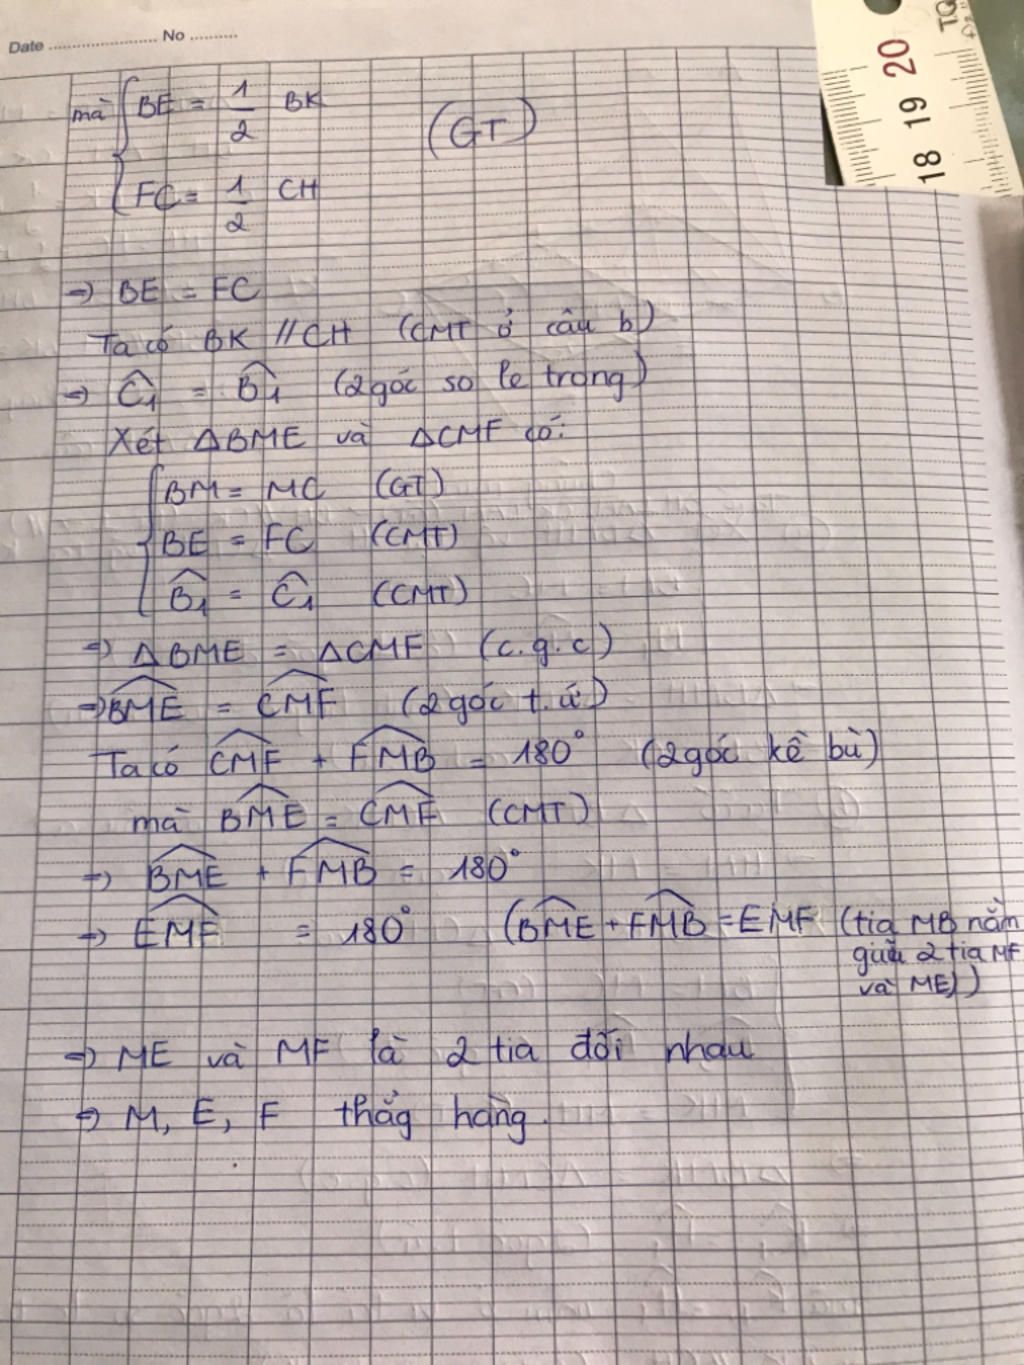 Date .......................... No ..........
mà { BE = 1/2 BK
(GT)
FC = 1/2 CH
⇒ BE = FC
Ta có BK // CH (CMT ở câu b)
⇒ Ĉ₁ = B̂₁ (2 góc so le trong)
Xét ΔBME và ΔCMF có:
{ BM = MC (GT)
BE = FC (CMT)
B̂₁ = Ĉ₁ (CMT)
⇒ ΔBME = ΔCMF (c.g.c)
⇒ BME = CMF (2 góc t.ứ)
Ta có CMF + FMB = 180° (2 góc kề bù)
mà BME = CMF (CMT)
⇒ BME + FMB = 180°
⇒ EMF = 180° (BME + FMB = EMF (tia MB nằm
giữa 2 tia MF
và ME))
⇒ ME và MF là 2 tia đối nhau
⇒ M, E, F thẳg hàng.
18 19 20